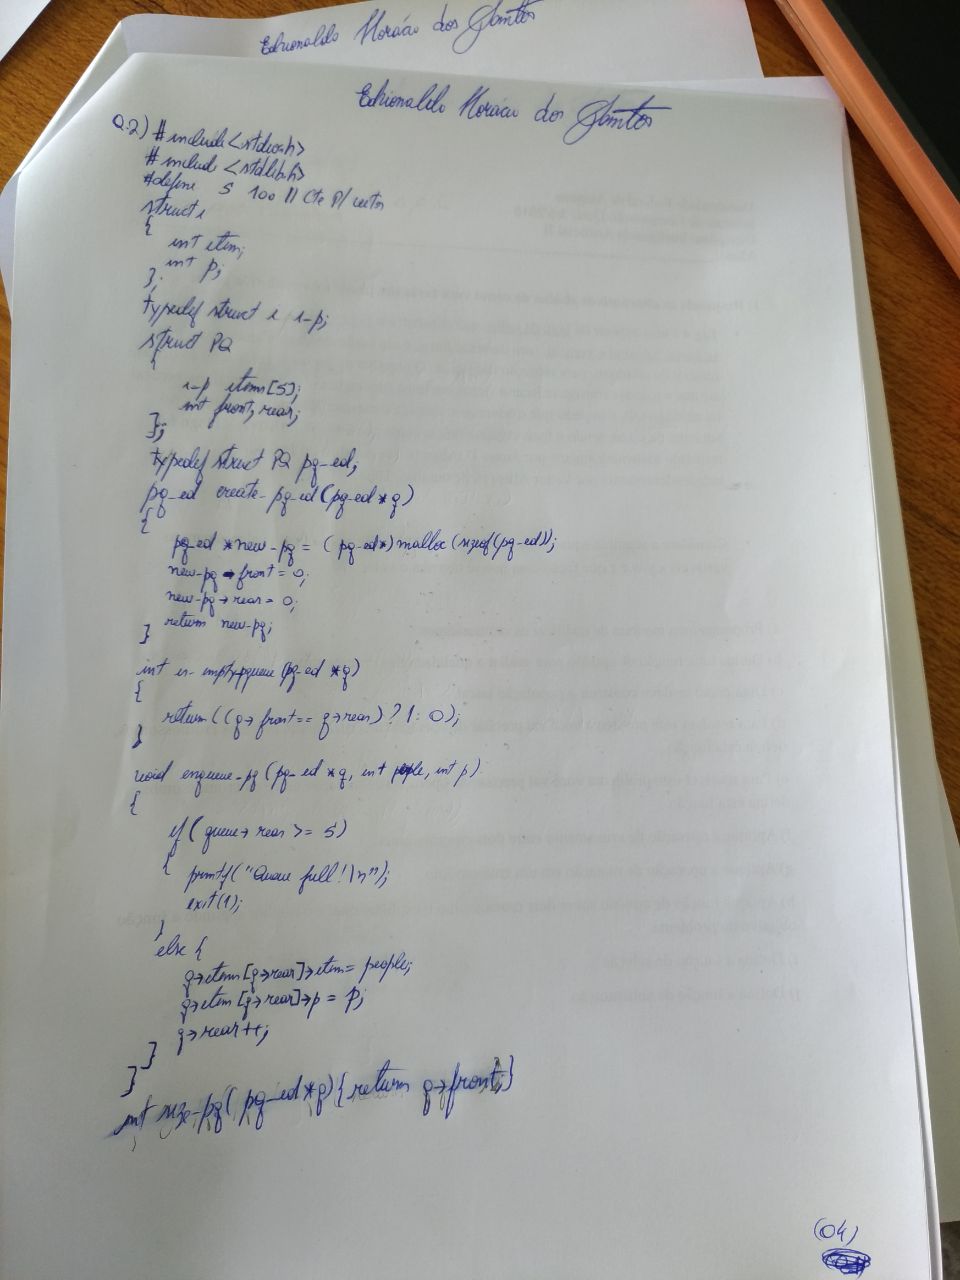 Edrionaldo Horácio dos Santos
Edrionaldo Horácio dos Santos
Q.2) #include<stdio.h>
#include <stdlib.h>
#define S 100 // Cte P/ vetor
struct i
{
int item;
int p;
};
typedef struct i i_p;
struct PQ
{
i_p items[S];
int front, rear;
};
typedef struct PQ pq_ed;
pq_ed create_pq_ed(pq_ed *q)
{
pq_ed *new_pq = (pq_ed*)malloc(sizeof(pq_ed));
new_pq->front = 0;
new_pq->rear = 0;
return new_pq;
}
int is_empty_pqueue(pq_ed *q)
{
return((q->front == q->rear) ? 1 : 0);
}
void enqueue_pq(pq_ed *q, int people, int p)
{
if(queue->rear >= S)
{
printf("Queue full!\n");
exit(1);
}
else {
q->items[q->rear]->item = people;
q->item[q->rear]->p = p;
q->rear++;
}
}
int size_pq(pq_ed *q){return q->front;}
(04)